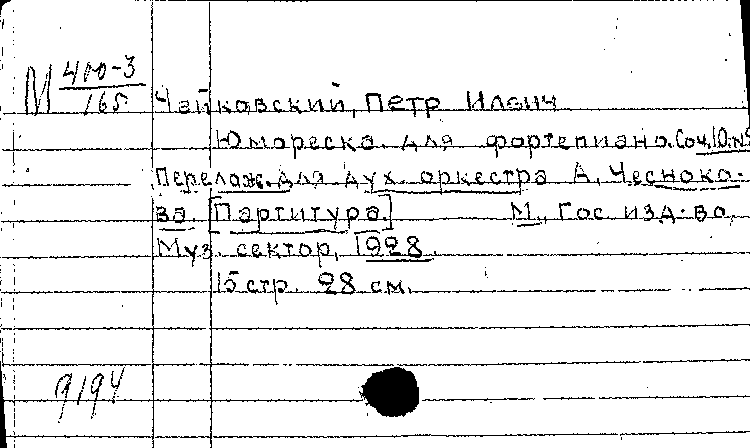 М 400-3
165
Чайковский, Петр Ильич
Юмореска для фортепиано. Соч. 10. №
Перелож. для дух. оркестра А. Чеснoка-
ва [Партитура.] М., Гос. изд-во,
Муз. сектор, 1928.
15 стр. 28 см.
9194